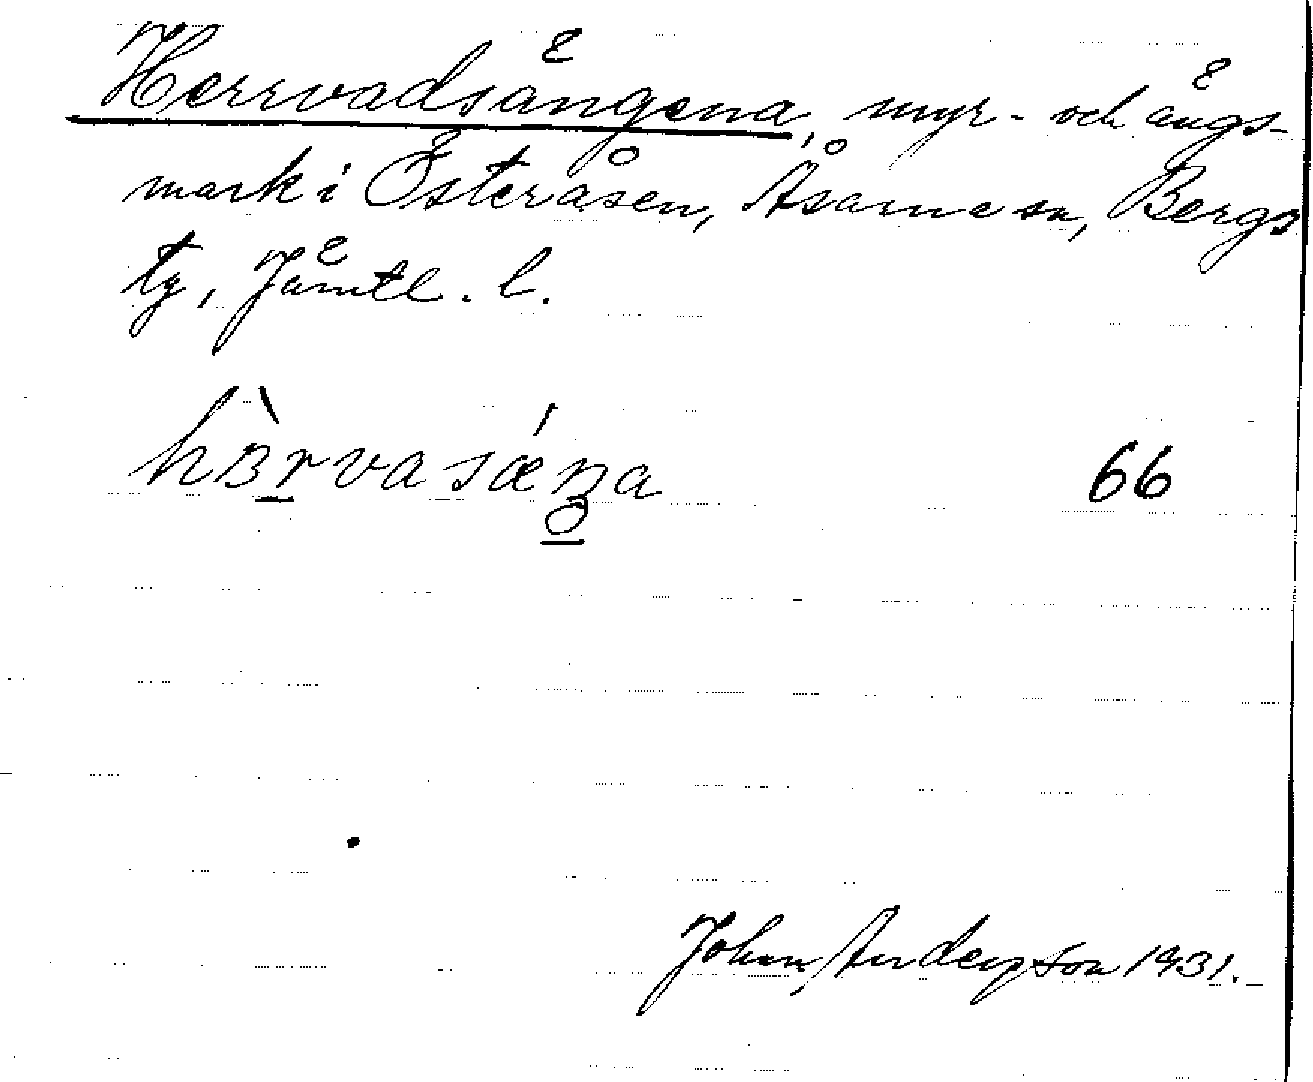 Herrvadsängena, myr- och ängs-
mark i Österåsen, Åsarne sn, Bergs
tg, Jämtl. l.
66
Johan Anderson 1931.